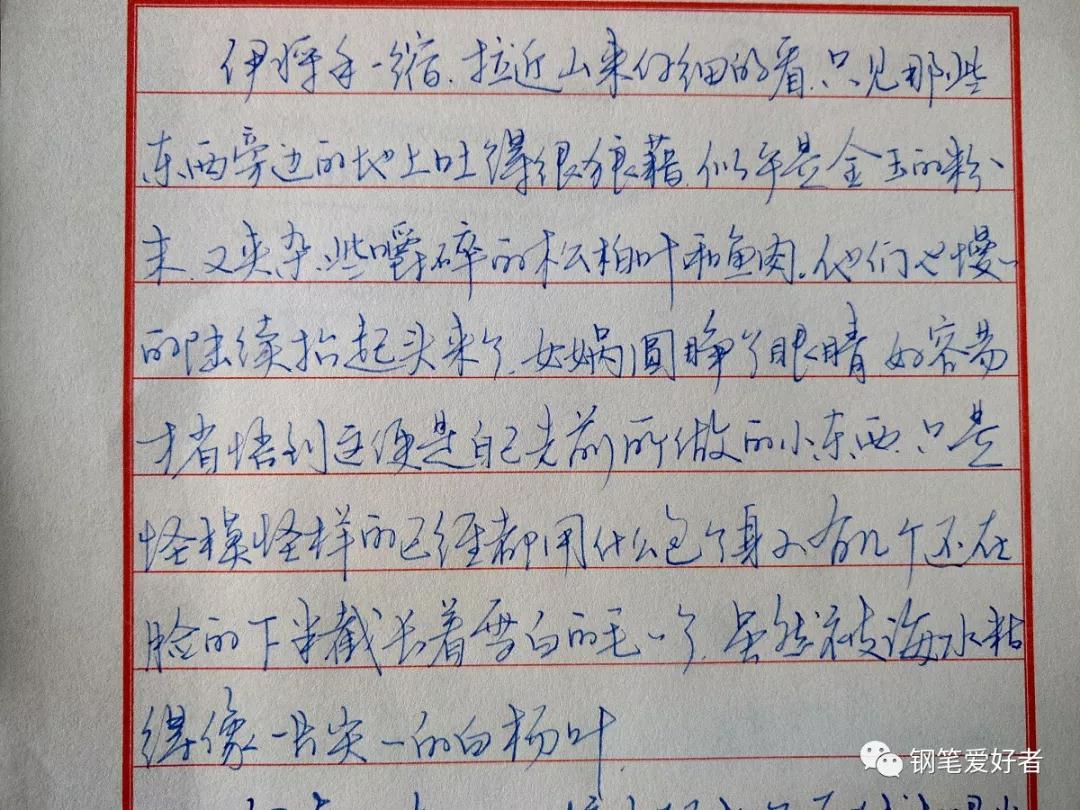 伊将手一缩，拉近山来仔细的看，只见那些
东西旁边的地上吐得很狼藉，似乎是金玉的粉
末，又夹杂些嚼碎的松柏叶和鱼肉。他们也慢慢
的陆续抬起头来了，女娲圆睁了眼睛，好容易
才省悟到这便是自己先前所做的小东西，只是
怪模怪样的已经都用什么包了身子，有几个还在
脸的下半截长着雪白的毛毛了，虽然被海水粘
得像一片尖尖的白杨叶。
钢笔爱好者